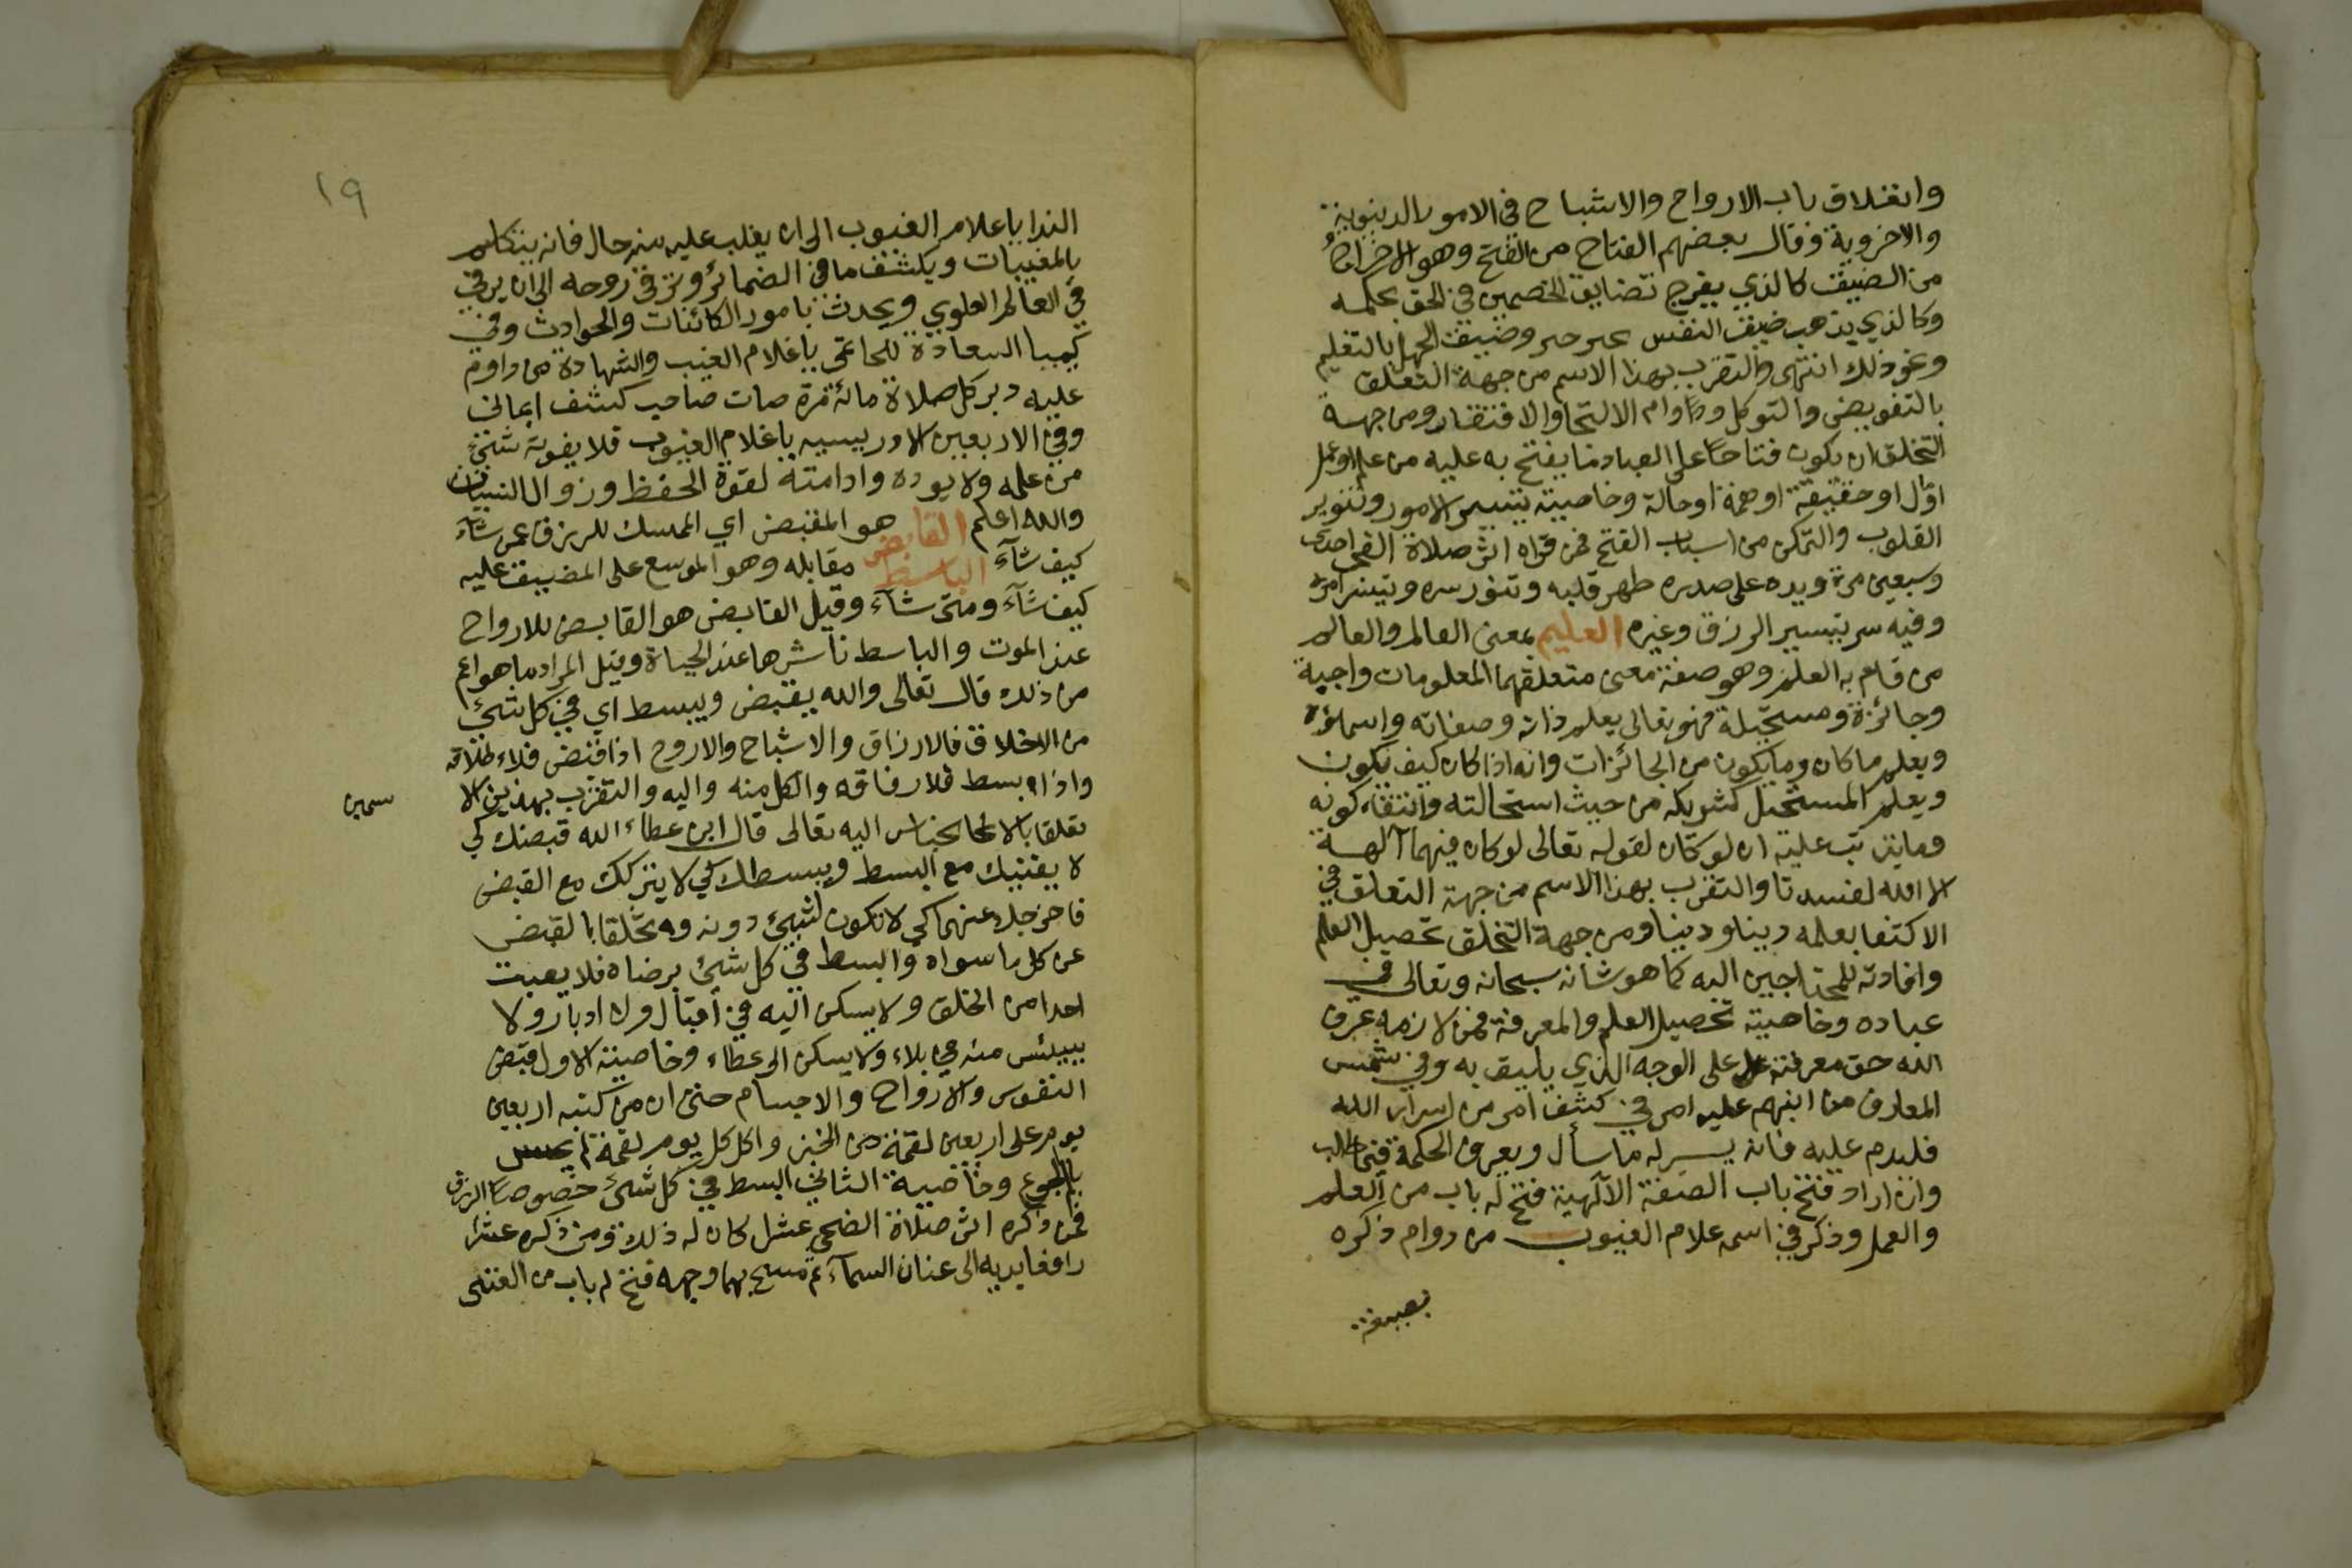 وانغلاق باب الارواح والاشباح في الامور الدينوية
والاخروية وقال بعضهم الفتاح من الفتح وهو الافراج
من الضيق كالذي يفرج تضايق الخصمين في الحق بحكمه
وكالذي يذهب ضيق النفس بخيره وضيق الجهل بالتعليم
ونحو ذلك انتهى والتقرب بهذا الاسم من جهة التعلق
بالتفويض والتوكل ودوام الالتجا والافتقار ومن جهة
التخلق ان يكون فتاحا على العباد بما يفتح به عليه من علم او عمل
او حقيقة او همة او حالة وخاصيته تيسير الامور وتنوير
القلوب والتمكن من اسباب الفتح فمن قراه اثر صلاة الفجر احدى
وسبعين مرة ويده على صدره طهر قلبه وتنور سره وتيسر امره
وفيه سر تيسير الرزق وغيره العليم بمعنى العالم والعالم
من قام به العلم وهو صفة معنى متعلقهما المعلومات واجبة
وجائزة ومستحيلة فهو تعالى يعلم ذاته وصفاته واسمائه
ويعلم ما كان وما يكون من الجائزات وانه اذا كان كيف يكون
ويعلم المستحيل كشريكه من حيث استحالته وانتفاء كونه
وما يترتب عليه ان لو كان لقوله تعالى لو كان فيهما آلهة
الا الله لفسدتا والتقرب بهذا الاسم من جهة التعلق في
الاكتفا بعلمه دينا ودينا ومن جهة التخلق تحصيل العلم
وافادته للمحتاجين اليه كما هو شانه سبحانه وتعالى في
عباده وخاصيته تحصيل العلم والمعرفة فمن لازمه عرف
الله حق معرفته على الوجه الذي يليق به وفي شمس
المعارف من انبهم عليه امر في كشف امر من اسرار الله
فليدم عليه فانه يسر له ما سأل ويعرف الحكمة فيما طلب
وان اراد فتح باب الصفة الآلهية فتح له باب من العلم
والعمل وذكر في اسمه علام الغيوب من دوام ذكره
بصيغة
١٩
الندا ياعلام الغيوب الى ان يغلب عليه منه حال فانه يتكلم
بالمغيبات ويكشف ما في الضمائر وترقى روحه الى ان يرقى
في العالم العلوي ويحدث بامور الكائنات والحوادث وفي
كيميا السعادة للحاتمي ياعلام الغيب والشهادة من داوم
عليه دبر كل صلاة مائة مرة صات صاحب كشف ايماني
وفي الاربعين الادريسيه ياعلام الغيوب فلا يفوته شئ
من علمه ولا يوده وادامته لقوة الحفظ وزوال النسيان
والله اعلم القابض هو المقبض اي الممسك للرزق عمن شآء
كيف شآء الباسط مقابله وهو الموسع على المضيق عليه
كيف شآء ومتى شآء وقيل القابض هو القابض للارواح
عند الموت والباسط ناشرها عند الحياة وقيل المراد ما هو اعم
من ذلك قال تعالى والله يقبض ويبسط اي في كل شئ
من الاخلاق فالارزاق والاشباح والاروح اذا قبض فلا طاقه
واذا بسط فلا فاقه والكل منه واليه والتقرب بهذين الا
سمين
تعلقا بالالحا بجنابه اليه تعالى قال ابن عطاء الله قبضك كي
لا يقنيك مع البسط وبسطك كي لا يتركك مع القبض
فاخرجك عنهما كي لا تكون لشئ دونه وه تخلقا بالقبض
عن كل ما سواه والبسط في كل شئ برضاه فلا يعبت
احدا من الخلق ولا يسكن اليه في اقبال ولا ادبار ولا
يبيئس منه في بلاء ولا يسكن الى عطاء وخاصية الاول قبض
النفوس والارواح والاجسام حتى ان من كتبه اربعين
يوم على اربعين لقمة من الخبز واكل كل يوم لقمة لم يحس
بالجوع وخاصية الثاني البسط في كل شئ خصوصا الرزق
فمن ذكره اثر صلاة الضحى عشرا كان له ذلك ومن ذكره عشرا
رافعا يديه الى عنان السمآء ثم مسح بهما وجهه فتح له باب من الغنى